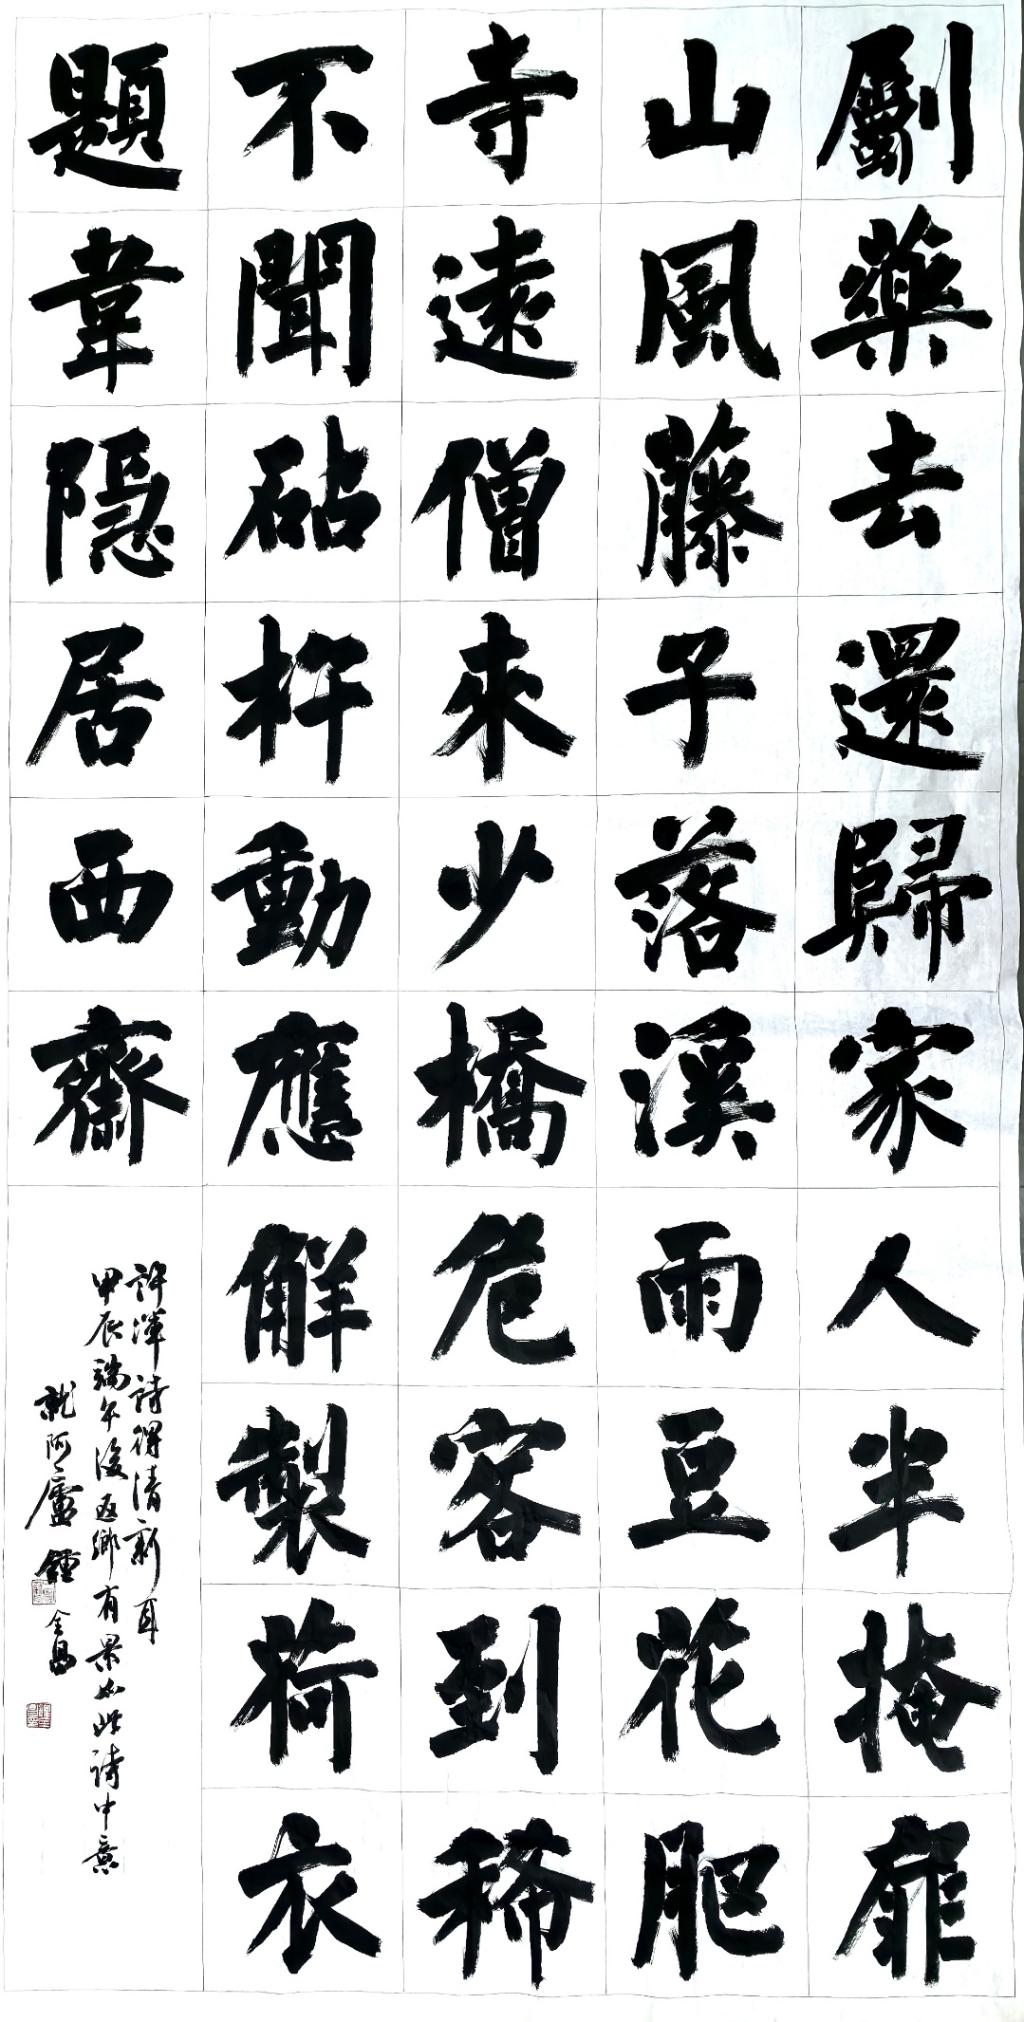 劚藥去還歸家人半掩扉
山風藤子落溪雨豆花肥
寺遠僧來少橋危客到稀
不聞砧杵動應解製荷衣
題韋隱居西齋
許渾詩得清新耳
甲辰端午後返鄉有景如此詩中意
就阿廬 鍾全昌